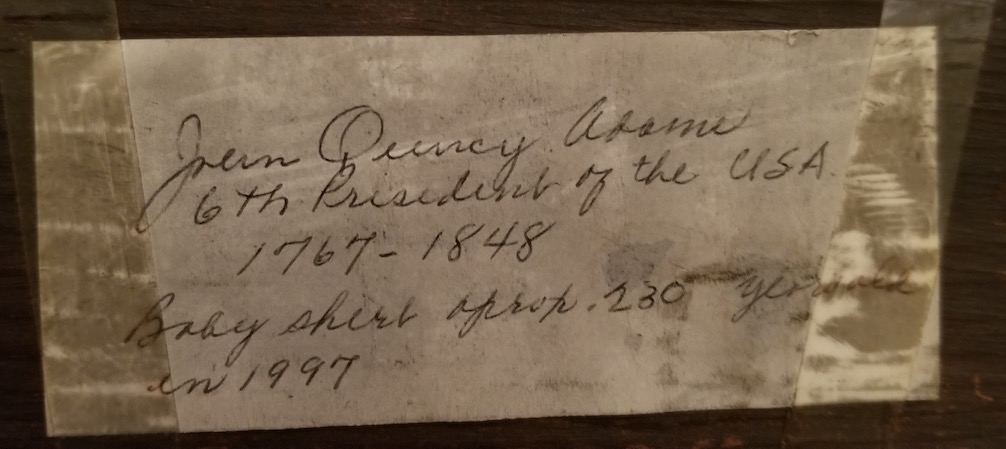 John Quincy Adams
6th President of the USA.
1767-1848
Baby shirt aprox. 230 years old
in 1997